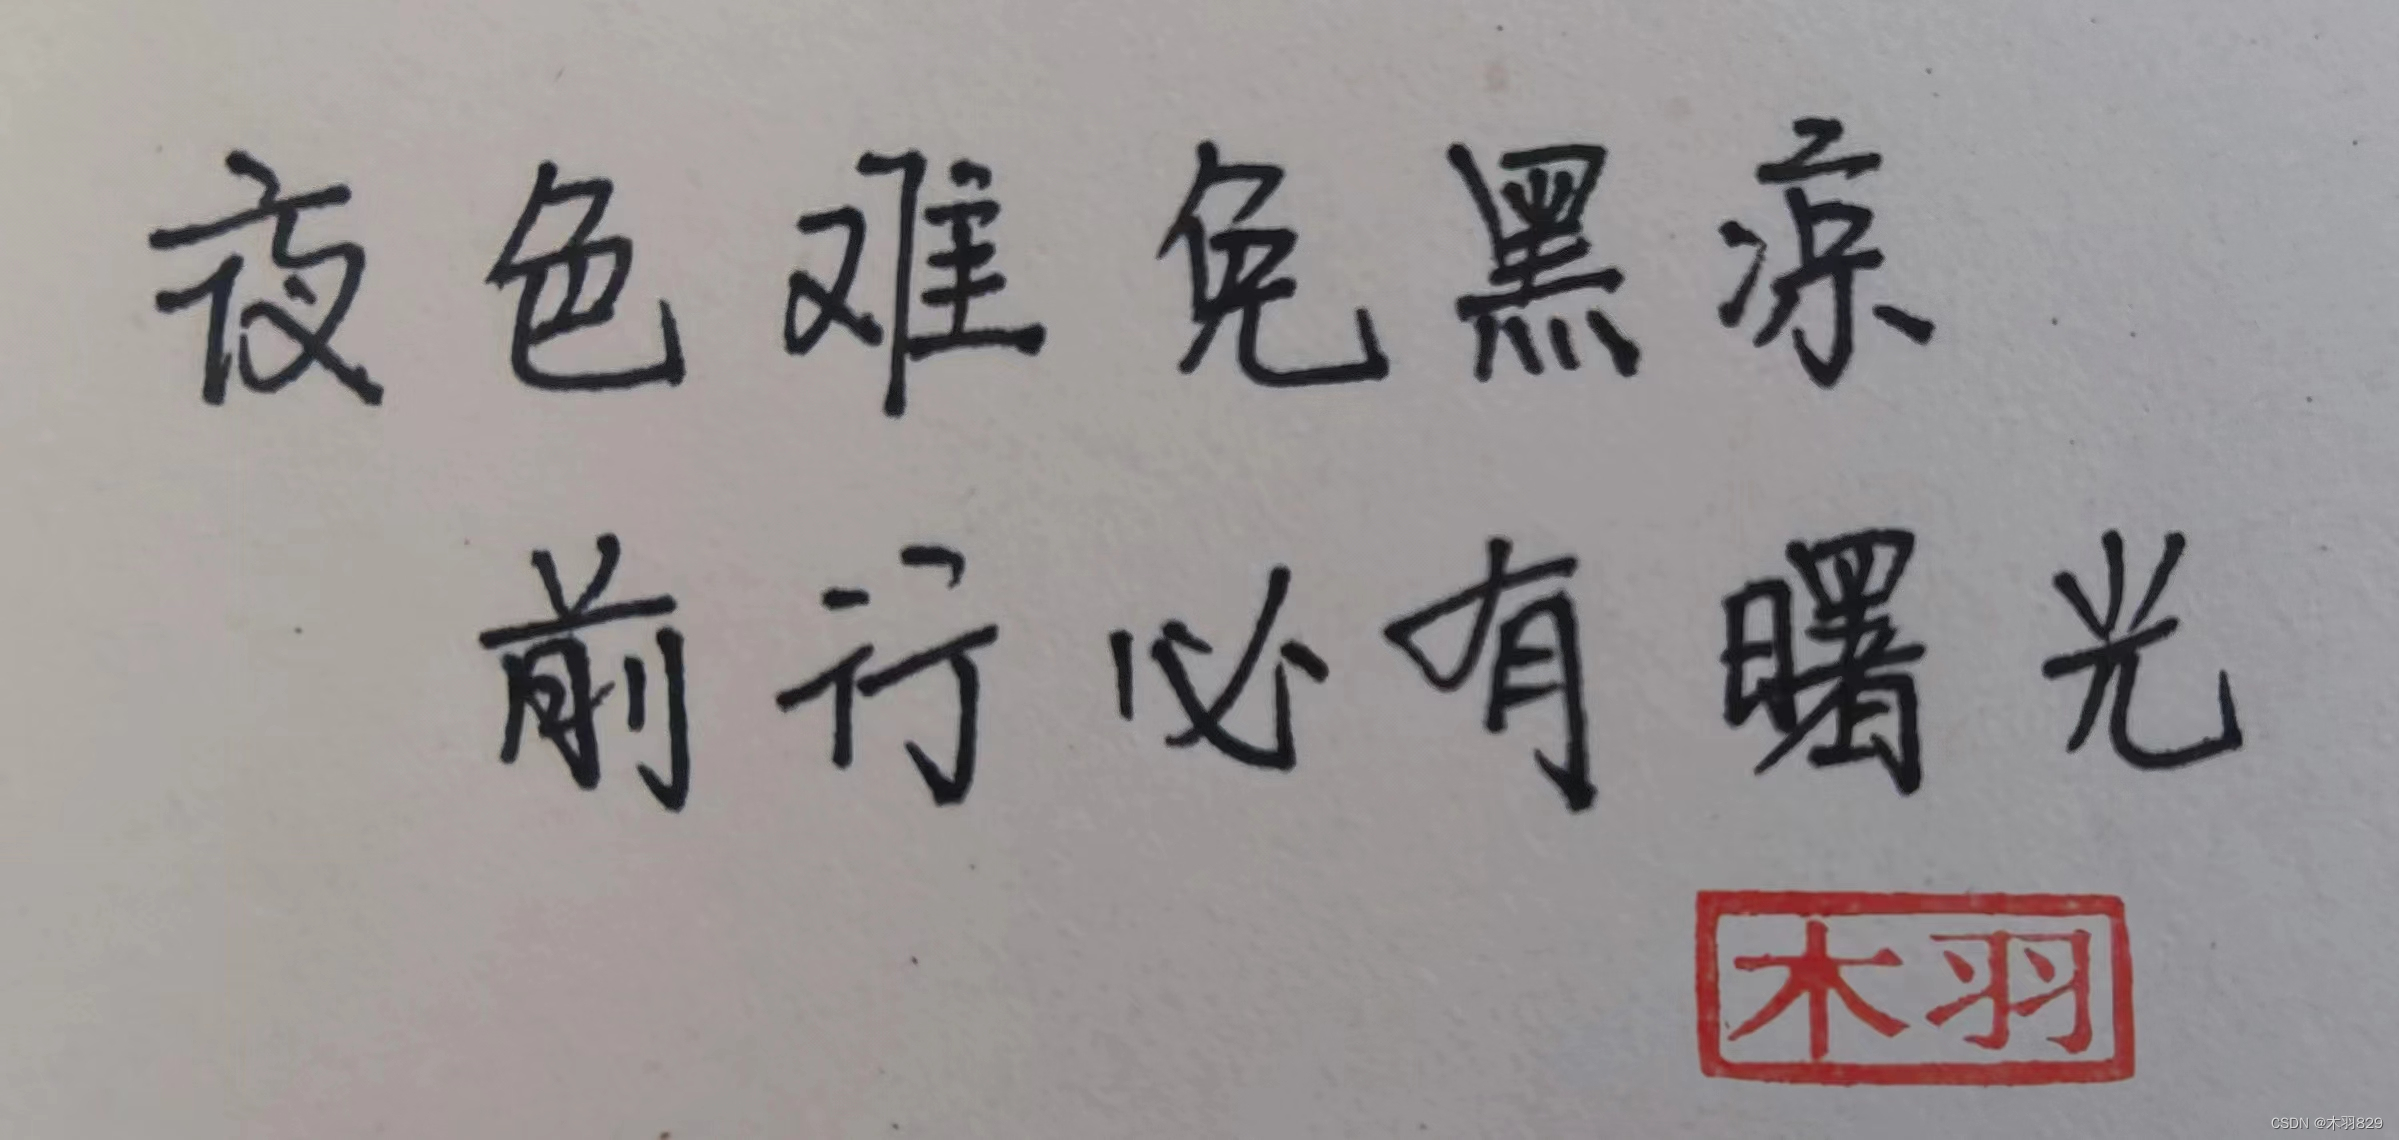 夜色难免黑凉
前行必有曙光
木羽
CSDN @木羽829